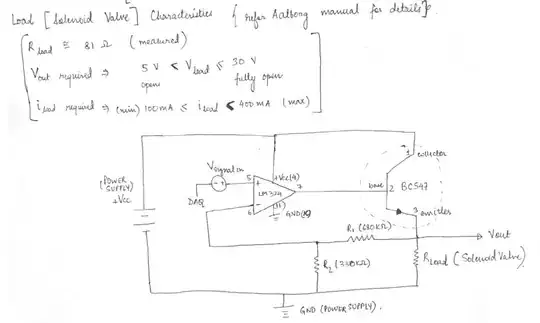 Load [Solenoid Valve] Characteristics { refer Aalborg manual for details}
R load ≅ 81 Ω (measured)
Vout required ⇒ 5 V < V load ≤ 30 V
open fully open
i load required ⇒ (min) 100 mA ≤ i load < 400 mA (max)
1 collector
(POWER SUPPLY)
+Vcc
Vsignal in
DAQ
5 +
+Vcc(4)
LM324
7
6 -
(11)
GND
base 2 BC547
3 emitter
R1 (680KΩ)
Vout
R2
RLoad (Solenoid Valve)
GND (POWER SUPPLY).